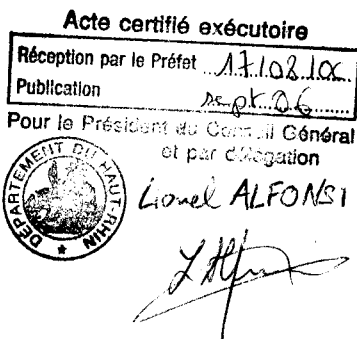 Acte certifié exécutoire
Réception par le Préfet ...17.08.06
Publication sept.06........
Pour le Président du Conseil Général
et par délégation
DÉPARTEMENT DU HAUT-RHIN
Lionel ALFONSI